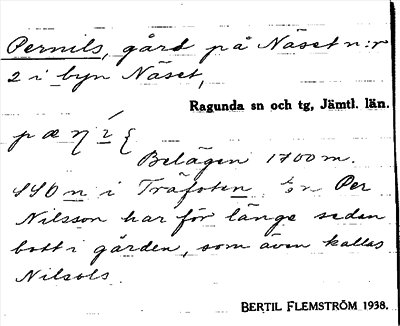 Pernils, gård på Näset n:r
2 i byn Näset,
Ragunda sn och tg, Jämtl. län.
Belägen 1700 m.
SSO n i Träfoten. Per
Nilsson har för länge sedan
bott i gården, som även kallas
Nilsols.
BERTIL FLEMSTRÖM 1938.